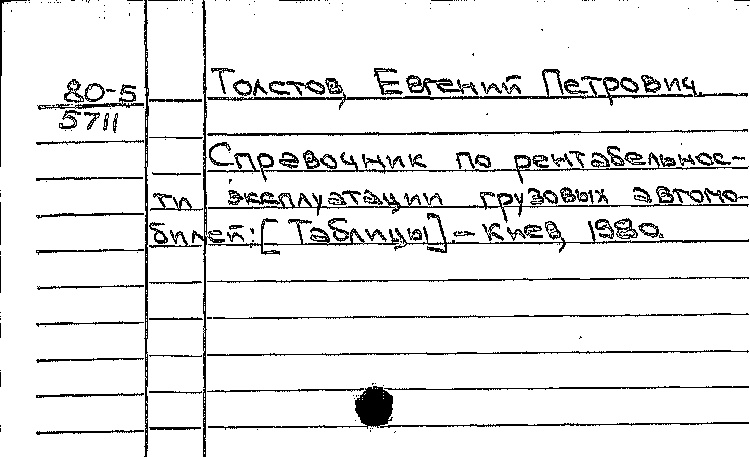 80-5
5711
Толстов, Евгений Петрович.
Справочник по рентабельнос-
ти эксплуатации грузовых автомо-
билей: [Таблицы]. - Киев, 1980.